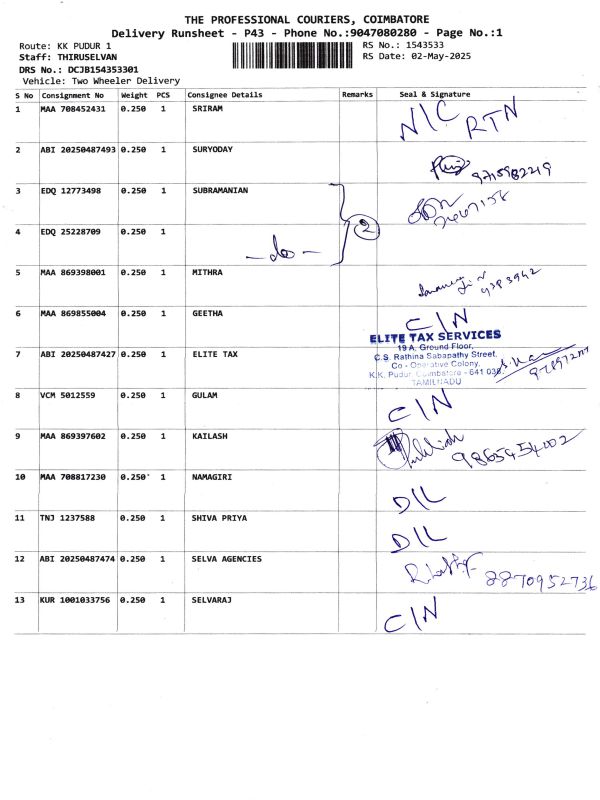 THE PROFESSIONAL COURIERS, COIMBATORE
Delivery Runsheet - P43 - Phone No.:9047080280 - Page No.:1
Route: KK PUDUR 1 RS No.: 1543533
Staff: THIRUSELVAN RS Date: 02-May-2025
DRS No.: DCJB154353301
Vehicle: Two Wheeler Delivery
S No Consignment No Weight PCS Consignee Details Remarks Seal & Signature
1 MAA 708452431 0.250 1 SRIRAM N/C RTN
2 ABI 20250487493 0.250 1 SURYODAY 9715982219
3 EDQ 12773498 0.250 1 SUBRAMANIAN
4 EDQ 25228709 0.250 1 -do- 2
5 MAA 869398001 0.250 1 MITHRA
6 MAA 869855004 0.250 1 GEETHA C/N
ELITE TAX SERVICES
19 A, Ground Floor,
7 ABI 20250487427 0.250 1 ELITE TAX C.S. Rathina Sabapathy Street,
Co - Operative Colony,
K.K. Pudur, Coimbatore - 641 038.
TAMILNADU
8 VCM 5012559 0.250 1 GULAM C/N
9 MAA 869397602 0.250 1 KAILASH 9865454002
10 MAA 708817230 0.250 1 NAMAGIRI D/L
11 TNJ 1237588 0.250 1 SHIVA PRIYA D/L
12 ABI 20250487474 0.250 1 SELVA AGENCIES 8870952736
13 KUR 1001033756 0.250 1 SELVARAJ C/N